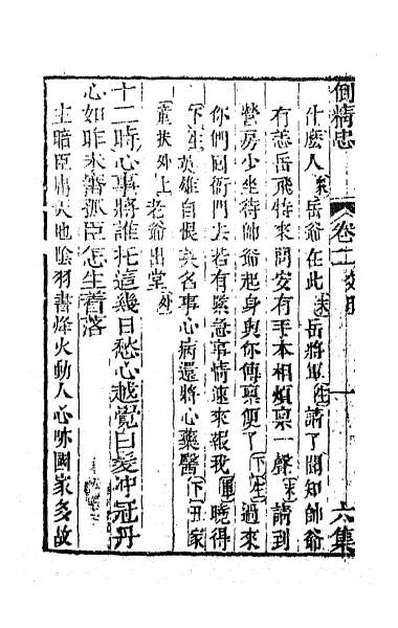 倒精忠
卷十
一
六集
什麼人[末]岳爺在此[末]岳將軍[生]請了聞知帥爺
有恙岳飛特來問安有手本相煩稟一聲[末]請到
營房少坐待帥爺起身與你傳稟便了[下][生]過來
你們回衙門去若有緊急事情速來報我[軍]曉得
[下][生]英雄自恨無名事心病還將心藥醫[下][丑家
童扶外上]老爺出堂[外]
十二時心事將誰托這幾日愁心越覺白髮冲冠丹
心如昨未審孤臣怎生着落
主暗臣庸天地陰羽書烽火動人心亦國家多故